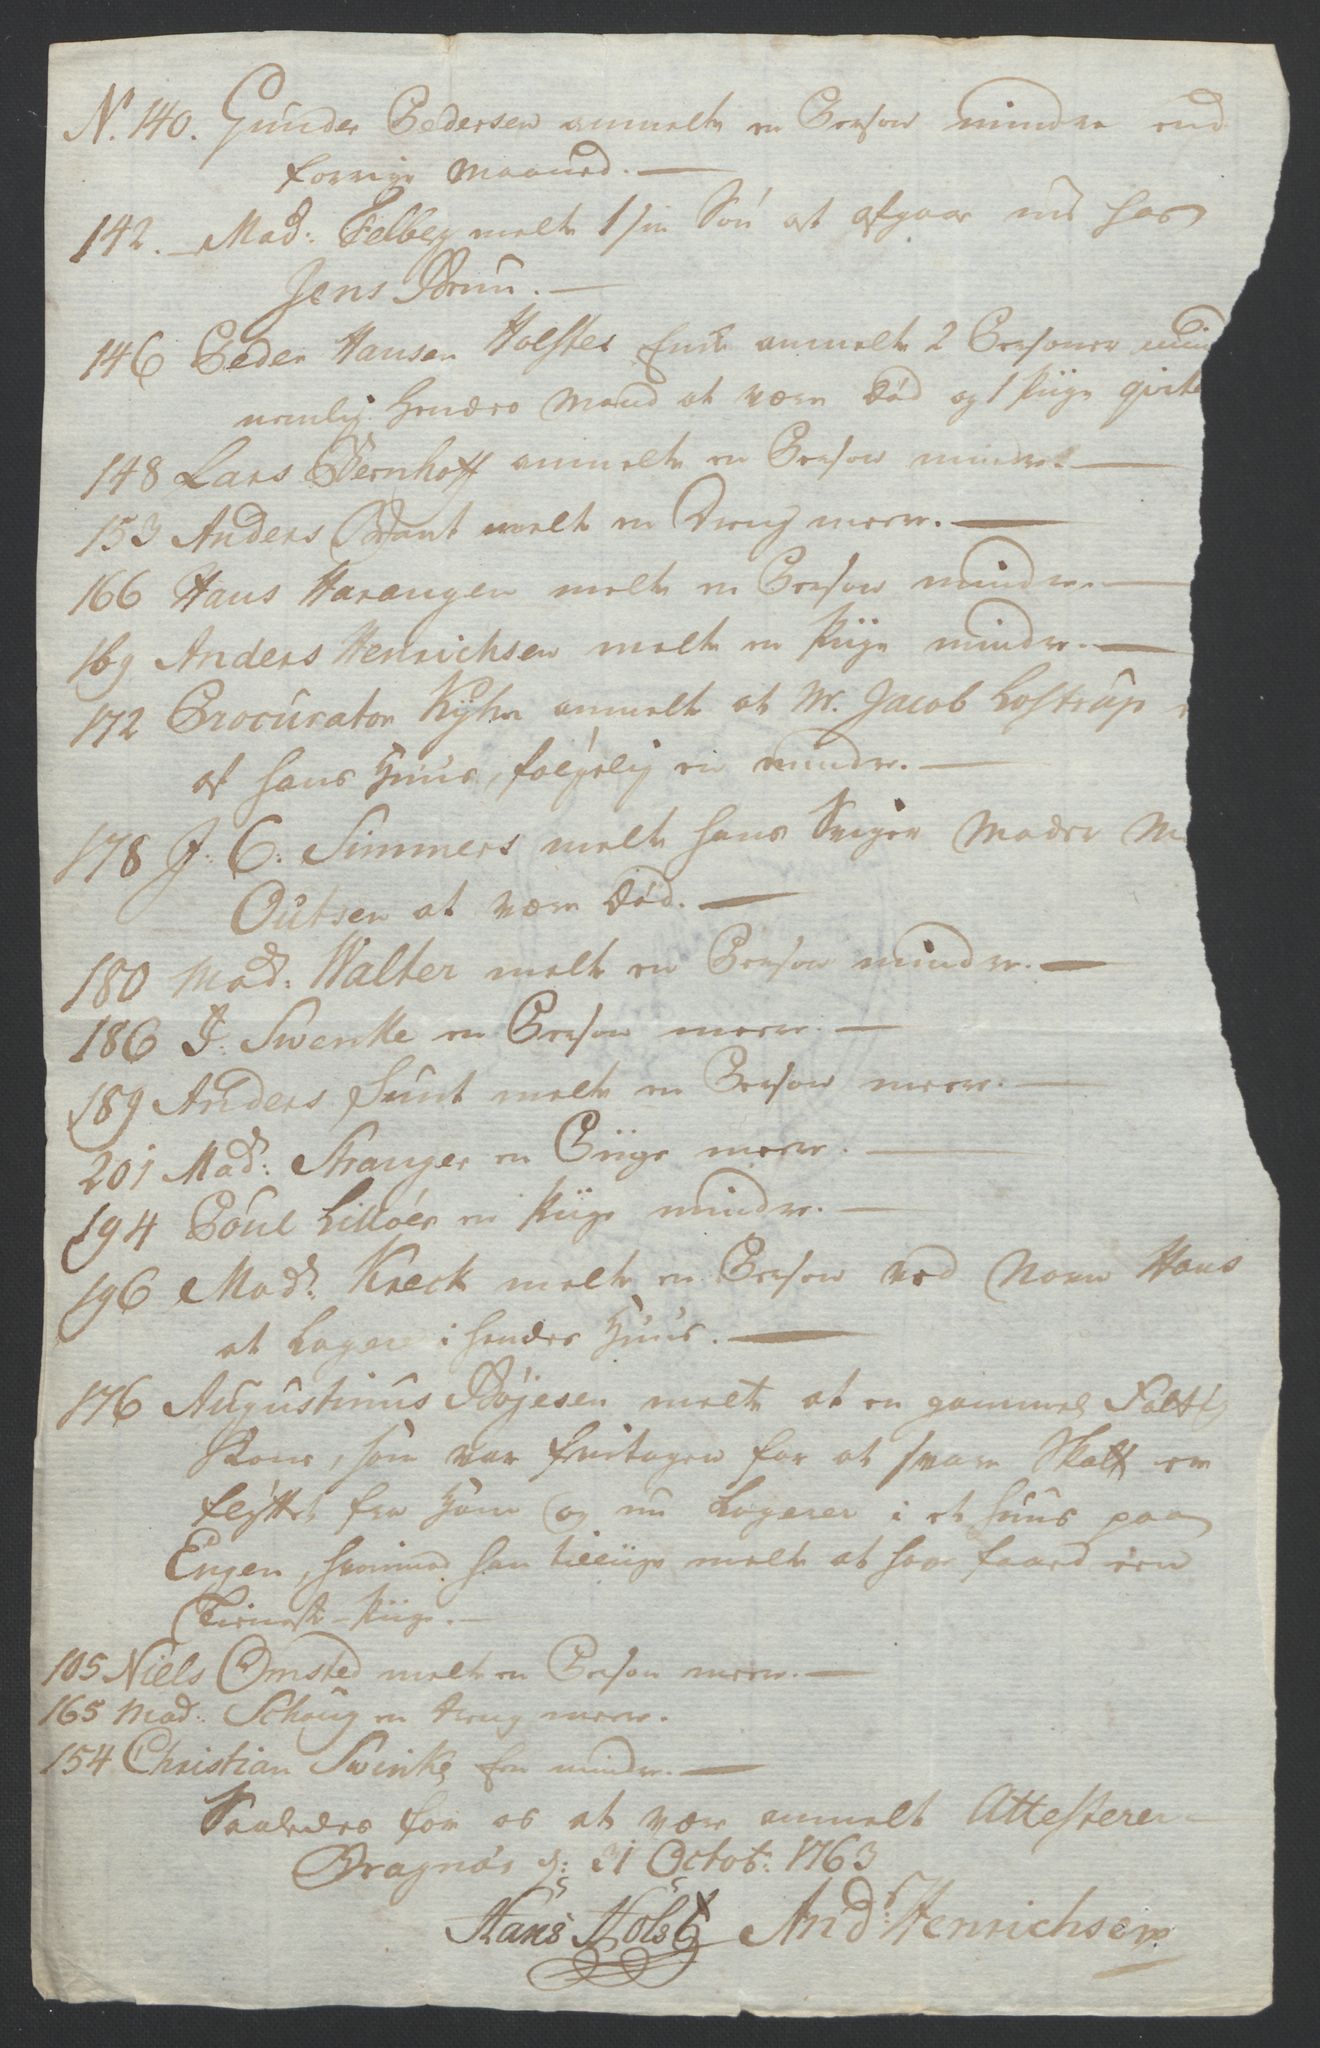 N. 140. Gunder Pedersen anmelte en Person mindre end
forrige Maaned. —
142. Mad: Felberg melte 1 sin Søn at afgaar nu hos
Jens Bruu. —
146 Peder Hansen Holstes Enke anmelte 2 Personer mind
nemlig hendes Mand at være død og 1 Piige gifte
148 Lars Bernhoft anmelte en Person mindre. —
153 Anders Brant melte en Dreng meere. —
166 Hans Harangen melte en Person mindre. —
169 Anders Henrichsen melte en Piige mindre. —
172 Procurator Kyhn anmelte at Mr. Jacob Lostrup
af hans Huus, følgelig en mindre. —
178 J: C: Simmers melte hans Sviger Moder M
Outsen at være død. —
180 Mad: Walter melte en Person mindre. —
186 J: Swenke en Person meere. —
189 Anders Sunt melte en Person meere. —
201 Mad: Stranger en Piige meere. —
194 Poul Lilløer en Piige mindre. —
196 Mad: Kreck melte en Person ved Navn Hans
at Logere i hendes Huus. —
176 Augustinus Bøjesen melte at en gammel Fattig
Kone, som var fritagen for at svare Skatt er
flyttet fra ham og nu Logerer i et Huus paa
Engen, hvormed han tilliige melte at have faaed een
Tieneste-Piige. —
105 Niels Omsted melte en Person meere. —
165 Mad: Schoug en Dreng meere.
154 Christian Swenke Een mindre. —
Saaledes for os at være anmelt Attesterer
Bragnæs d: 31 Octob: 1763
Hans Holst And: Henrichsen